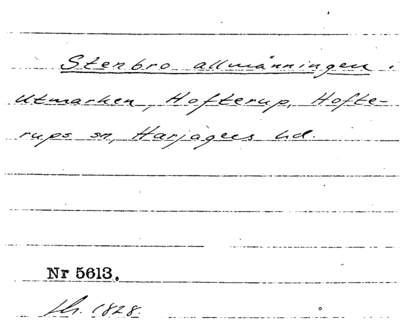 Stenbro allmänningen.
Utmarken, Hofterup, Hofte-
rups sn, Harjagers hd.
Nr 5613.
1828.